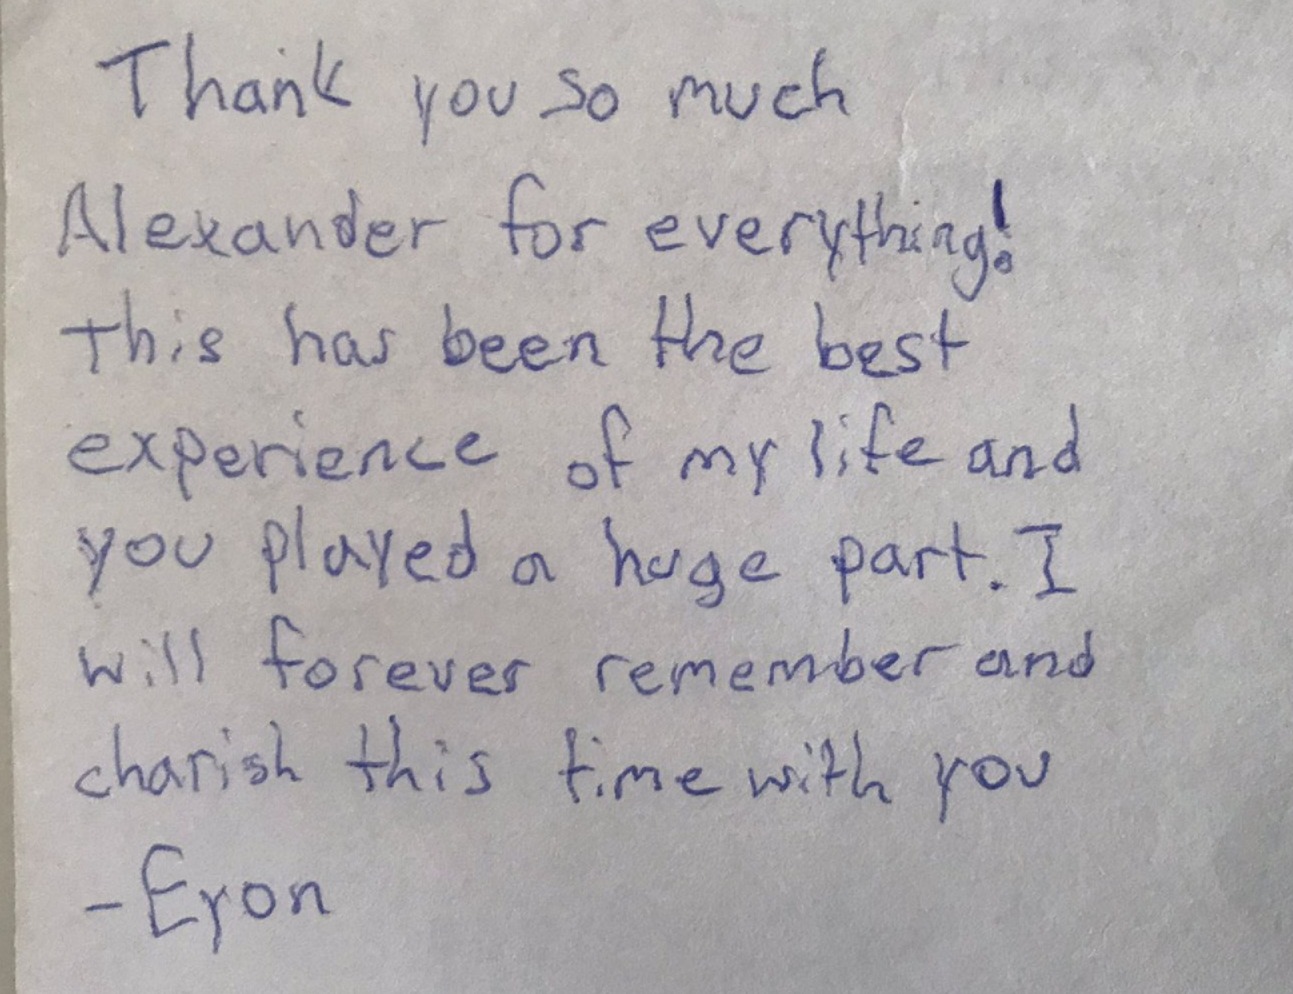 Thank you so much
Alexander for everything!
This has been the best
experience of my life and
you played a huge part. I
will forever remember and
charish this time with you
- Eyon